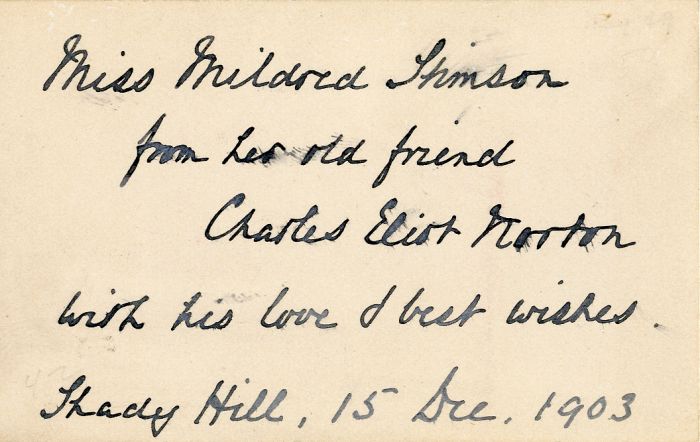 Miss Mildred Stimson
from her old friend
Charles Eliot Norton
with his love & best wishes.
Shady Hill, 15 Dec. 1903